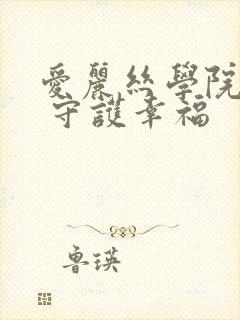 愛麗絲學院
守護幸福
魯瑛